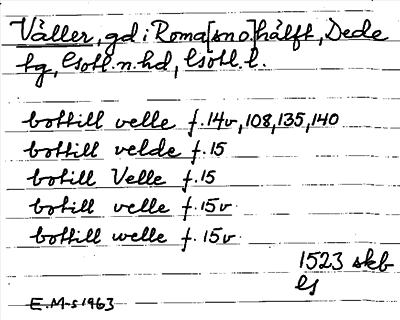 Väller, gd i Roma [sno] hälft, Dede
hg, Gotl. n. hd, Gotl. l.
bottill velle f. 14v, 108, 135, 140
bottill velde f. 15
botill Velle f. 15
botill velle f. 15v
bottill welle f. 15v
1523 skb
E.M-s 1963